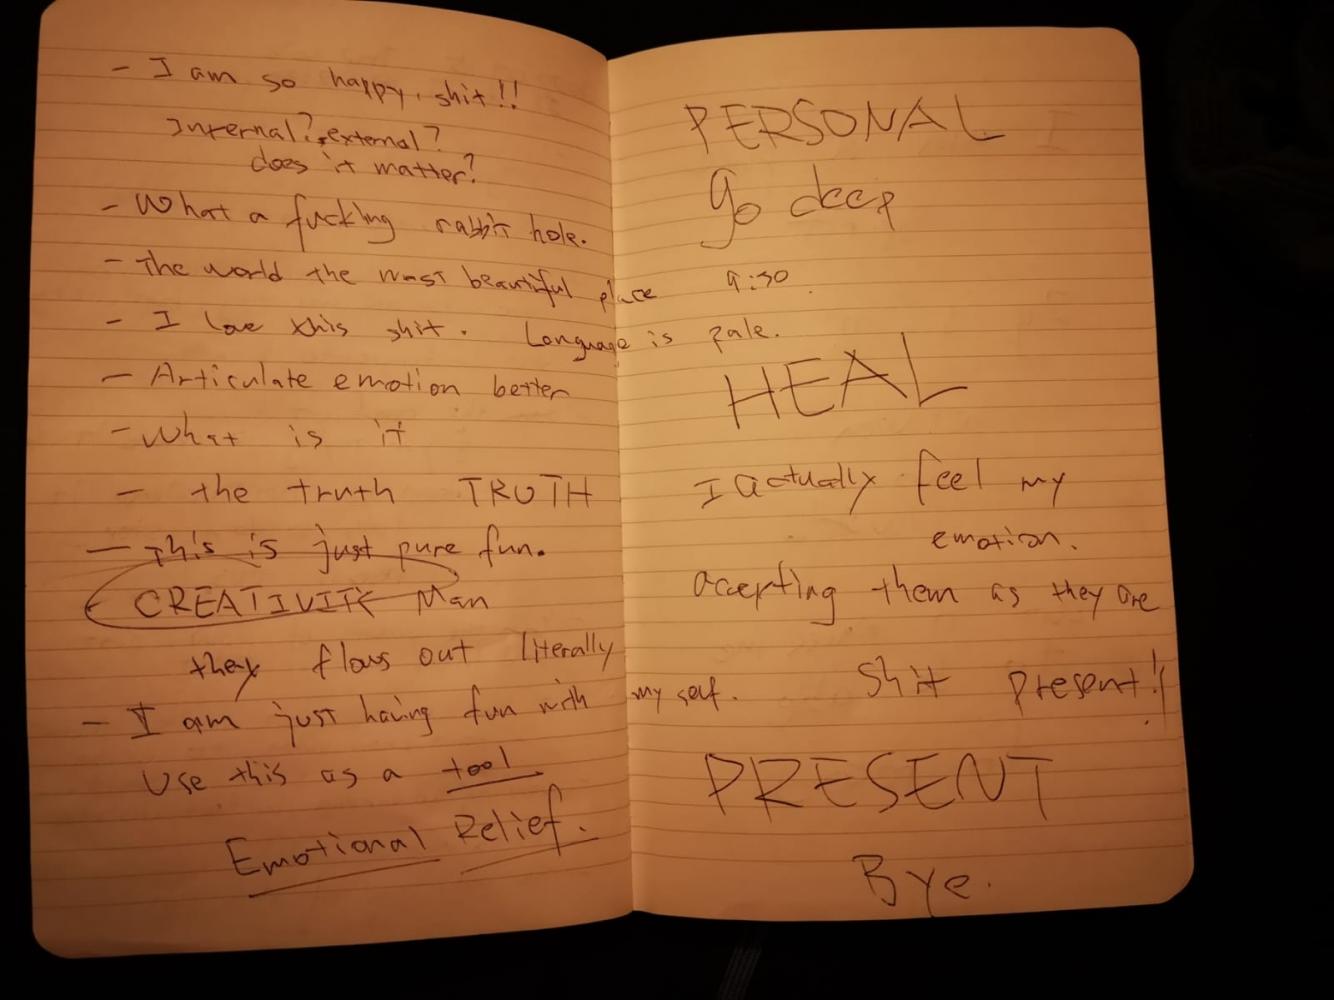 - I am so happy, shit!!
Internal? external?
does it matter?
- What a fucking rabbit hole.
- The world the most beautiful place
- I love this shit. Language is pale.
- Articulate emotion better
- What is it
- the truth TRUTH
- This is just pure fun.
CREATIVITY Man
they flows out literally
- I am just having fun with my self.
Use this as a tool
Emotional Relief.
PERSONAL
go deep
9:30
HEAL
I actually feel my
emotion.
accepting them as they are
Shit present!!
PRESENT
Bye.